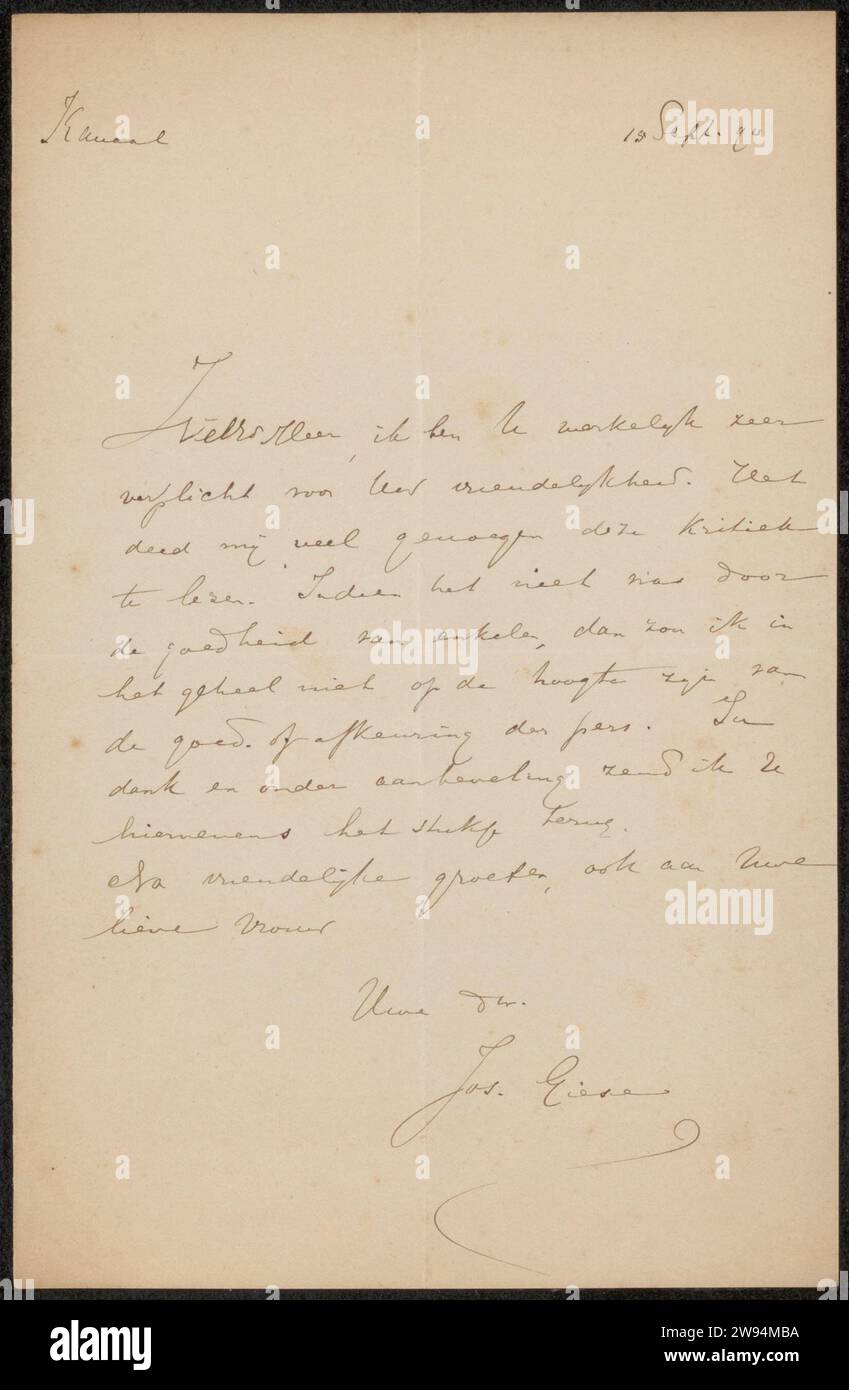 Kanaal
15 Sept. 90
WelEd Heer, ik ben U werkelijk zeer
verplicht voor Uw vriendelijkheid. Het
deed mij veel genoegen deze kritiek
te lezen. Indien het niet was door
de goedheid van enkelen, dan zou ik in
het geheel niet op de hoogte zijn van
de goed- of afkeuring der pers. In
dank en onder aanbeveling zend ik U
hiernevens het stukje terug.
Na vriendelijke groeten, ook aan Uwe
lieve Vrouw
Uwe dw.
Jos. Giese
alamy
Image ID: 2W94MBA
www.alamy.com